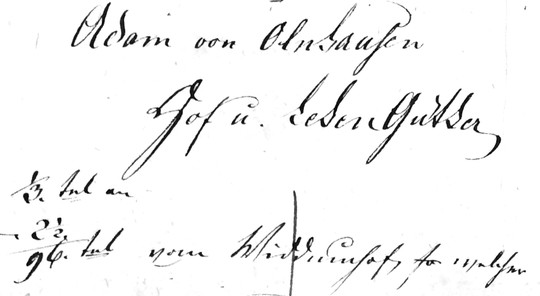 Adam von Olnhausen
Hof u. Lehen Güther
1/3. tel an
22.
96. tel vom Widdumhof, so welcher